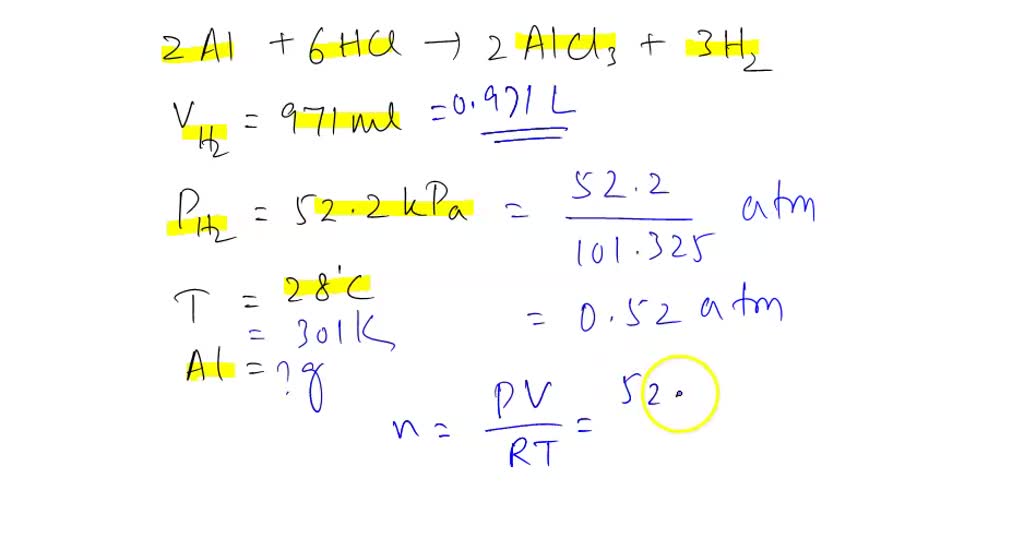 2Al + 6HCl → 2AlCl₃ + 3H₂
V_H₂ = 971 ml = 0.971 L
P_H₂ = 52.2 kPa = 52.2 / 101.325 atm
T = 28°C = 0.52 atm
= 301K
Al = ? g
n = PV / RT = 52.